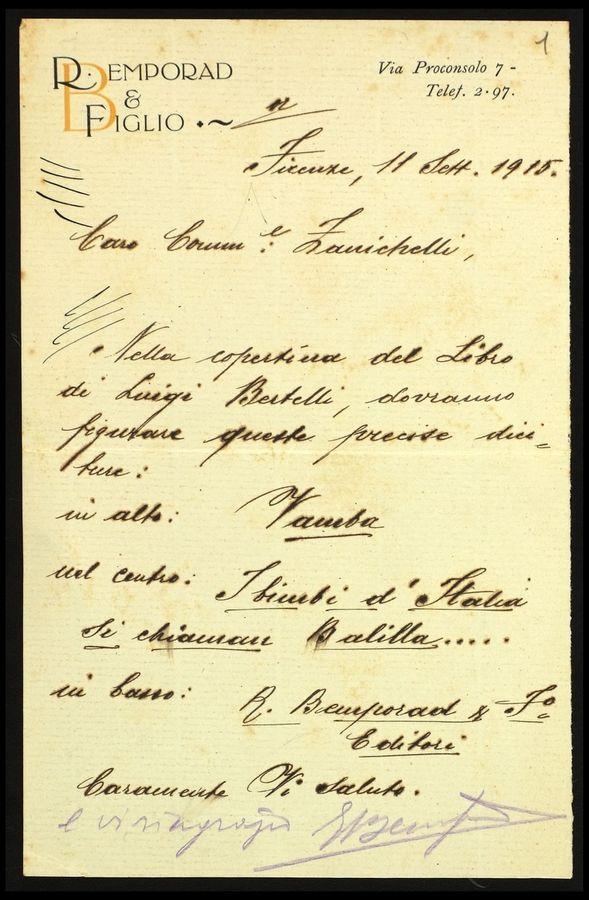 1
R. BEMPORAD
& FIGLIO
Via Proconsolo 7 -
Telef. 2·97.
Firenze, 11 Sett. 1915.
Caro Comm.e Zanichelli,
Nella copertina del Libro
di Luigi Bertelli, dovranno
figurare queste precise dici=
ture:
in alto: Vamba
nel centro: I bimbi d'Italia
si chiaman Balilla.....
in basso: R. Bemporad & Fo
Editori
Caramente Vi saluto.
e vi ringrazio EBemporad